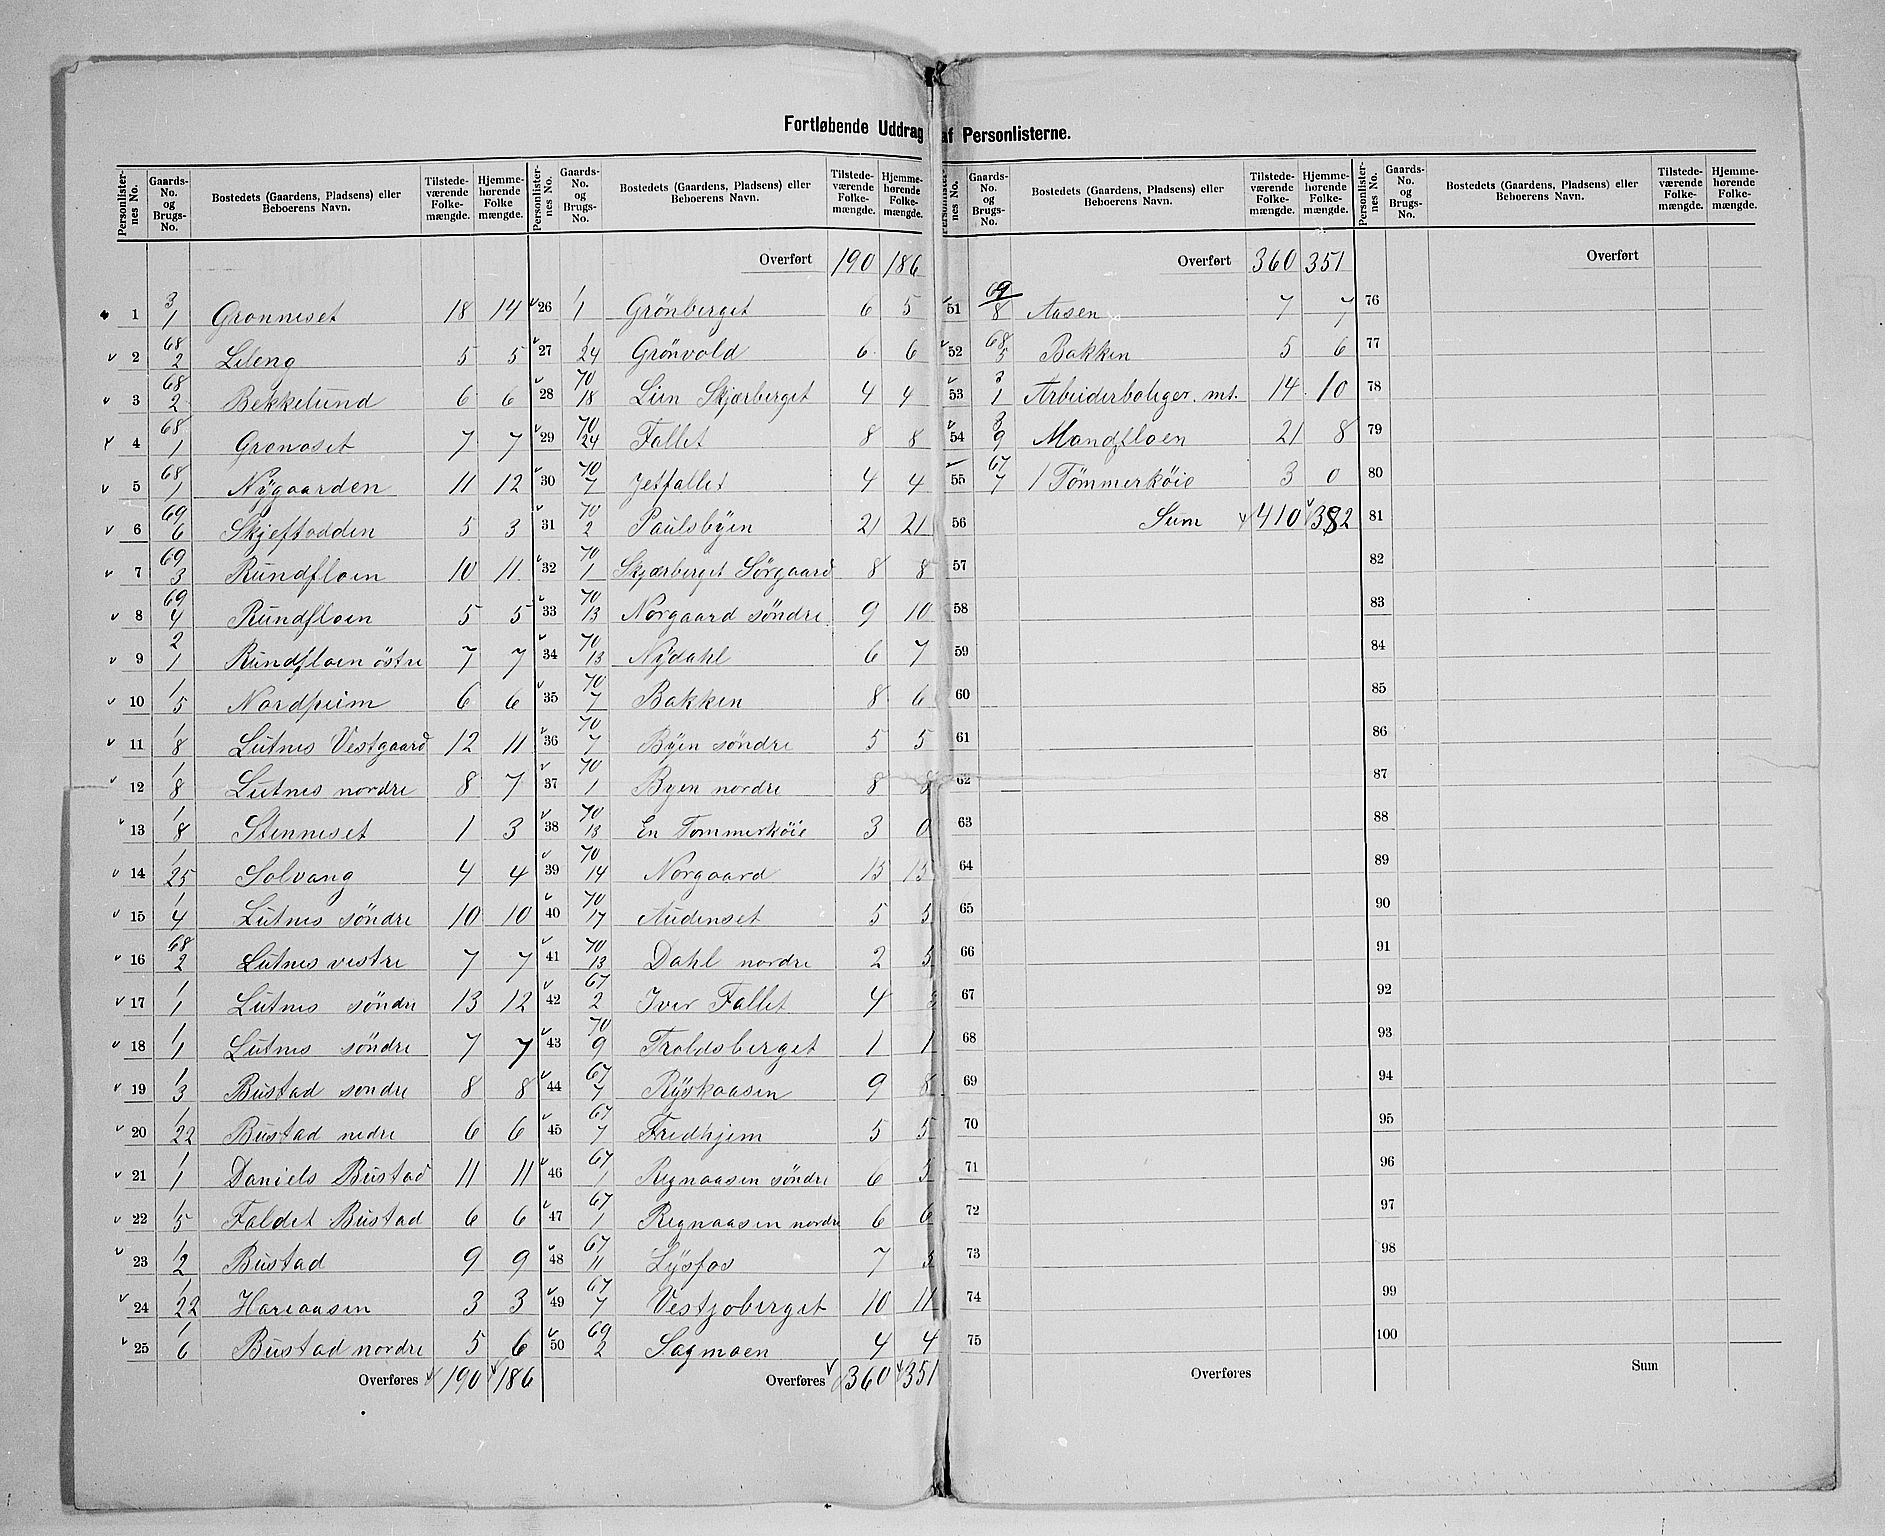 Fortløbende Uddrag af Personlisterne.
Personlister-nes No. | Gaards-No. og Brugs-No. | Bostedets (Gaardens, Pladsens) eller Beboerens Navn. | Tilstede-værende Folke-mængde. | Hjemme-hørende Folke mængde.
1 3/1 Grønneset 18 14
2 68/2 Lileng 5 5
3 68/2 Bekkelund 6 6
4 68/1 Gronoset 7 7
5 68/1 Nÿgaarden 11 12
6 69/6 Skjeftodden 5 3
7 69/3 Rundfloen 10 11
8 69/4 Rundfloen 5 5
9 2/1 Rundfloen östre 7 7
10 1/5 Nordheim 6 6
11 1/8 Lutnes Vestgaard 12 11
12 1/8 Lutnes nordre 8 7
13 1/8 Stenneset 1 3
14 1/25 Solvang 4 4
15 1/4 Lutnes söndre 10 10
16 68/2 Lutnes vestre 7 7
17 1/1 Lutnes söndre 13 12
18 1/1 Lutnes söndre 7 7
19 1/3 Bustad sondre 8 8
20 1/22 Bustad nedre 6 6
21 1/1 Daniels Bustad 11 11
22 1/5 Faldet Bustad 6 6
23 1/2 Bustad 9 9
24 1/22 Hareaasen 3 3
25 1/6 Bustad nordre 5 6
Overføres 190 186
Personlister-nes No. | Gaards-No. og Brugs-No. | Bostedets (Gaardens, Pladsens) eller Beboerens Navn. | Tilstede-værende Folke-mængde. | Hjemme-hørende Folke-mængde.
Overført 190 186
26 1/1 Grönberget 6 5
27 1/24 Grönvold 6 6
28 70/18 Lien Skjærberget 4 4
29 70/24 Fallet 8 8
30 70/7 Jetfallet 4 4
31 70/2 Paulsbÿen 21 21
32 70/1 Skjærberget Sörgaard 8 8
33 70/13 Norgaard söndre 9 10
34 70/13 Nÿdahl 6 7
35 70/7 Bakken 8 6
36 70/7 Bÿen söndre 5 5
37 70/1 Byen nordre 8 8
38 70/13 En Tommerköie 3 0
39 70/14 Norgaard 13 13
40 70/17 Audenset 5 5
41 70/13 Dahl nordre 2 5
42 67/2 Iver Fallet 4
43 70/9 Troldsberget 1 1
44 67/7 Rÿskaasen 9 8
45 67/7 Fredhjem 5 5
46 67/1 Regnaasen söndre 6 5
47 67/1 Regnaasen nordre 6 6
48 67/11 Lÿsfos 7
49 67/7 Vestjoberget 10 11
50 69/2 Sagmoen 4 4
Overføres 360 351
Personlister-nes No. | Gaards-No. og Brugs-No. | Bostedets (Gaardens, Pladsens) eller Beboerens Navn. | Tilstede-værende Folke-mængde. | Hjemme-hørende Folke-mængde.
Overført 360 351
51 69/8 Aasen 7 7
52 68/5 Bakken 5 6
53 3/1 Arbeiderboliger. mt. 14 10
54 3/9 Mandfloen 21 8
55 67/7 1 Tömmerköie 3 0
56 Sum 410 382
57
58
59
60
61
62
63
64
65
66
67
68
69
70
71
72
73
74
75
Overføres
Personlister-nes No. | Gaards-No. og Brugs-No. | Bostedets (Gaardens, Pladsens) eller Beboerens Navn. | Tilstede-værende Folke-mængde. | Hjemme-hørende Folke-mængde.
Overført
76
77
78
79
80
81
82
83
84
85
86
87
88
89
90
91
92
93
94
95
96
97
98
99
100
Sum